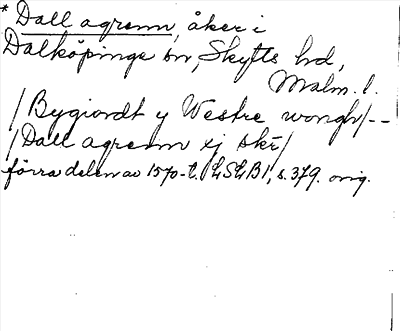 * Dall agrenn, åker i
Dalköpinge sn, Skytts hd,
Malm. l.
/Bygiordt y Westre wongh/--
/Dall agrenn ej skr/
förra delen av 1570-t. LSEB1, s. 379. orig.